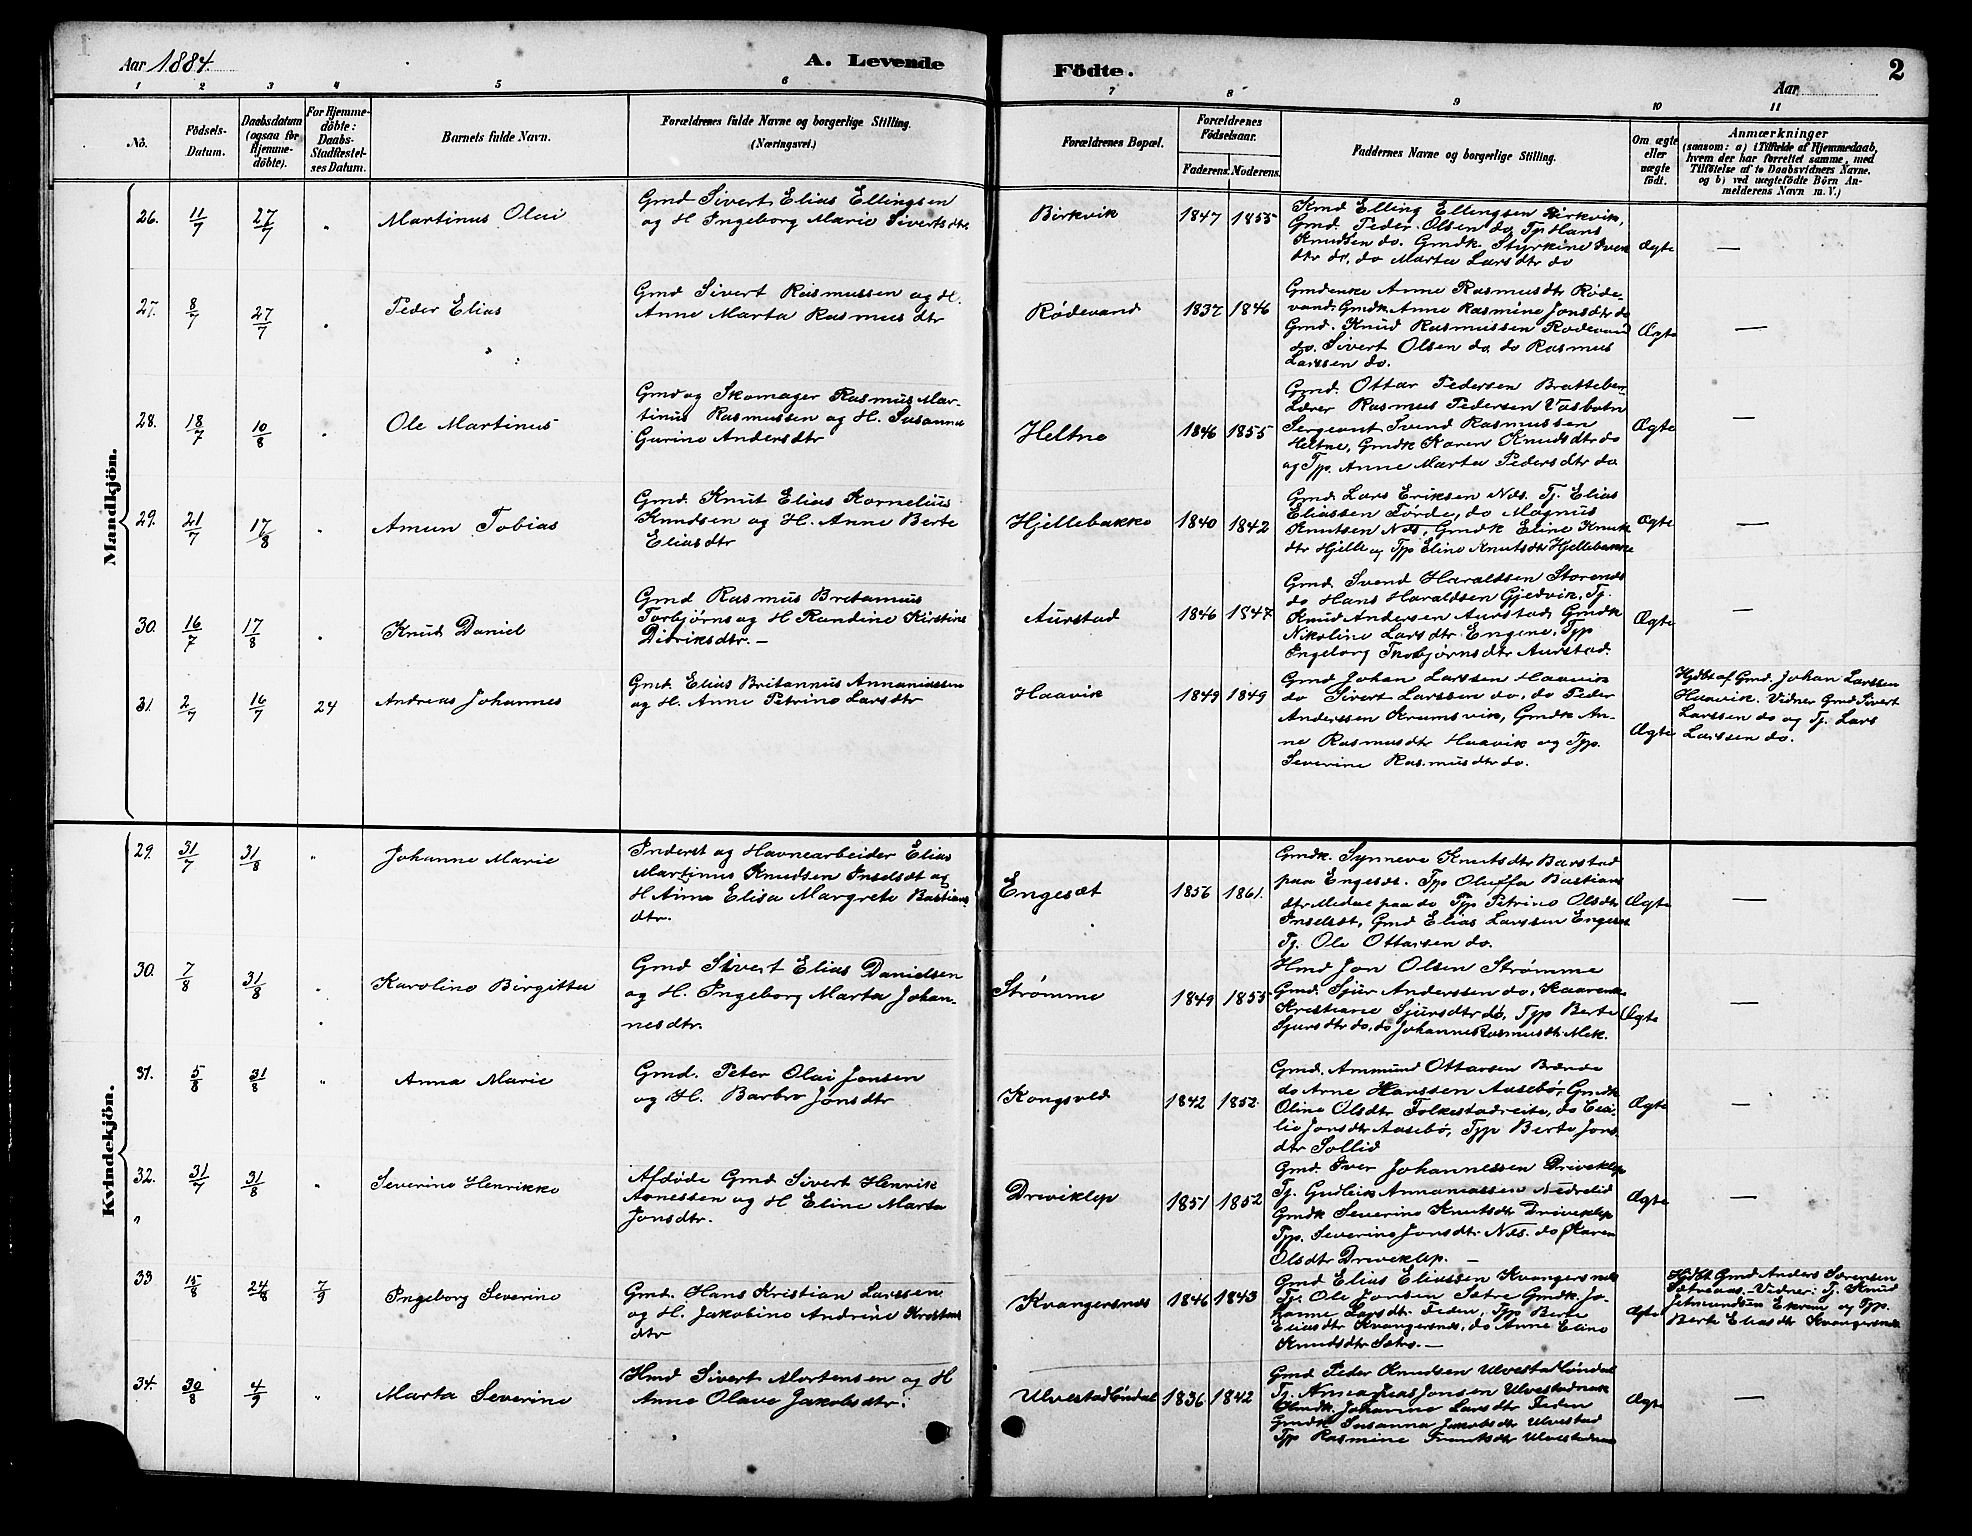 Aar 1884.
A. Levende
Födte.
Aar
2
1 2 3 4 5 6 7 8 9 10 11
No.
Födsels-
Datum.
Daabsdatum
(ogsaa for
Hjemme-
döbte).
For Hjemme-
döbte:
Daabs-
Stadfæstel-
ses Datum.
Barnets fulde Navn.
Forældrenes fulde Navne og borgerlige Stilling.
(Næringsvei.)
Forældrenes Bopæl.
Forældrenes
Födselsaar.
Faderens. Moderens.
Faddernes Navne og borgerlige Stilling.
Om ægte
eller
uægte
födt.
Anmærkninger
(saasom: a) i Tilfælde af Hjemmedaab,
hvem der har forrettet samme, med
Tilföielse af to Daabsvidners Navne,
og b) ved uægtefödte Börn An-
melderens Navn m. V.)
Mandkjön.
26. 11/7 27/7 " Martinus Olai
Gmd Sivert Elias Ellingsen
og H. Ingeborg Marie Sivertsdtr.
Birkvik 1847 1855
Kmd Elling Ellingsen Birkvik,
Gmd. Peder Olsen do, Tp. Hans
Knudsen do. Gmdk. Styrkine Iver
dtr do, do Marta Larsdtr do
Ægte —
27. 8/7 27/7 " Peder Elias
Gmd Sivert Rasmussen og H.
Anne Marta Rasmusdtr
Rødevand 1837 1846
Gmdenke Anne Rasmusdtr Røde-
vand, Gmdk Anne Rasmine Jonsdtr do
Gmd. Knud Rasmussen Rødevand
do. Sivert Olsen do, do Rasmus
Larssen do.
Ægte —
28. 18/7 10/8 " Ole Martinus
Gmd og Skomager Rasmus Mar-
tinus Rasmussen og H. Susanne
Gurine Andersdtr
Heltne 1846 1855
Gmd. Ottar Pedersen Bratteber
Lærer Rasmus Pedersen Vasbotn
Sergeant Svend Rasmussen
Heltne, Gmdk Karen Knudsdtr do
og Tjp. Anne Marta Pedersdtr do
Ægte —
29. 21/7 17/8 " Amun Tobias
Gmd. Knut Elias Kornelius
Knudsen og H. Anne Berte
Eliasdtr
Hjellebakke 1840 1842
Gmd Lars Eriksen Nds. Tj. Elias
Eliassen Førde, do Magnus
Knutsen Nds, Gmdk Eline Knuts
dtr Hjelle og Tjp Eline Knutsdtr Hjellebakke
Ægte —
30. 16/7 17/8 " Knud Daniel
Gmd Rasmus Britanius
Torbjørns og H Randine Kirstine
Didriksdtr. —
Aurstad 1846 1847
Gmd. Svend Haraldsen Storenes
do Hans Haraldsen Gjedvik, Tj.
Knud Andersen Aurstad, Gmdk
Nikoline Larsdtr Engene, Tjp
Ingeborg Thorbjørnsdtr Aurstad.
Ægte —
31. 2/7 16/7 24 Andreas Johannes
Gmd. Elias Britannus Annaniassen
og H. Anne Petrine Larsdtr
Haavik 1849 1849
Gmd Johan Larssen Haavik
do Sivert Larssen do, do Peder
Anderssen Krumsvik, Gmdk An-
ne Rasmusdtr Haavik og Tjp.
Severine Rasmusdtr do.
Ægte
Hjdbt af Gmd. Johan Larssen
Haavik. Vidner Gmd Sivert
Larssen do og Tj. Lars
Larssen do.
Kvindekjön.
29. 31/7 31/8 " Johanne Marie
Inderst og Havnearbeider Elias
Martinus Knudsen Inselsdt og
H Anne Elisa Margrete Bastians
dtr.
Engesæt 1856 1861.
Gmdk. Synneve Knutsdtr Barstad
paa Engesdt. Tjp Oluffa Bastians
dtr Medal paa do Tjp Petrine Olsdtr
Inselsdt, Gmd Elias Larssen Engeset
Tj. Ole Ottarsen do.
Ægte —
30. 7/8 31/8 " Karoline Birgitta
Gmd Sivert Elias Danielsen
og H. Ingeborg Marta Johan-
nesdtr.
Strømme 1849 1855
Hmd Jon Olsen Strømme
Gmd. Sjur Anderssen do, Kaarenke
Kristiane Sjursdtr do, Tjp Berte
Sjursdtr do, do Johanne Rasmusdtr Mek.
Ægte —
31. 5/8 31/8 " Anna Marie
Gmd. Peter Olai Jonsen
og H. Barbro Jonsdtr
Kongsvold 1842 1852
Gmd. Ammund Ottarsen Bønde
do Arne Hanssen Aasebø, Gmdk
Oline Olsdtr Folkestadreite, do
Jonsdtr Aasebø, Tjp Berte Jons
dtr Sollid
Ægte —
32. 31/7 31/8 " Severine Henrikke
Afdøde Gmd Sivert Henrik
Arnessen og H Eline Marta
Jonsdtr.
Driveklep 1851 1852
Gmd. Iver Johannessen Driveklep
Tj. Gudleik Annaniassen Nedrelid
Gmdk Severine Knutsdtr Driveklep
Tjp. Severine Jonsdtr Nds. do Karen
Olsdtr Driveklep. —
Ægte —
33 15/8 24/8 7/9 Ingeborg Severine
Gmd. Hans Kristian Larssen
og H. Jakobine Andrine Kristens
dtr
Kvangersnes 1846 1843
Gmd Elias Eliassen Kvangersnes
Tj. Ole Jonsen Sætre Gmdk. Jo-
hanne Larsdtr Feden, Tjp Berte
Eliasdtr Kvangersnes, do Anne Eline
Knutsdtr Sætre. —
Ægte
Hjdbt Gmd Anders Sørensen
Vidner: Tj. Knud
Jetmundsen Ekrem og Tjp.
Berte Eliasdtr Kvangersnes
34. 30/8 4/9 " Marta Severine
Hmd Sivert Mortensen og H
Anne Olave Jakobsdtr.
Ulvestadløndal 1836 1842
Gmd Peder Knudsen Ulvestadløndal
Tj. Jonsen Ulvestadnak
Gmdk. Johanne Larsdtr Feden
Gmdk Susanna Jakobsdtr Ulvestad
Tjp Rasmine
Ægte —